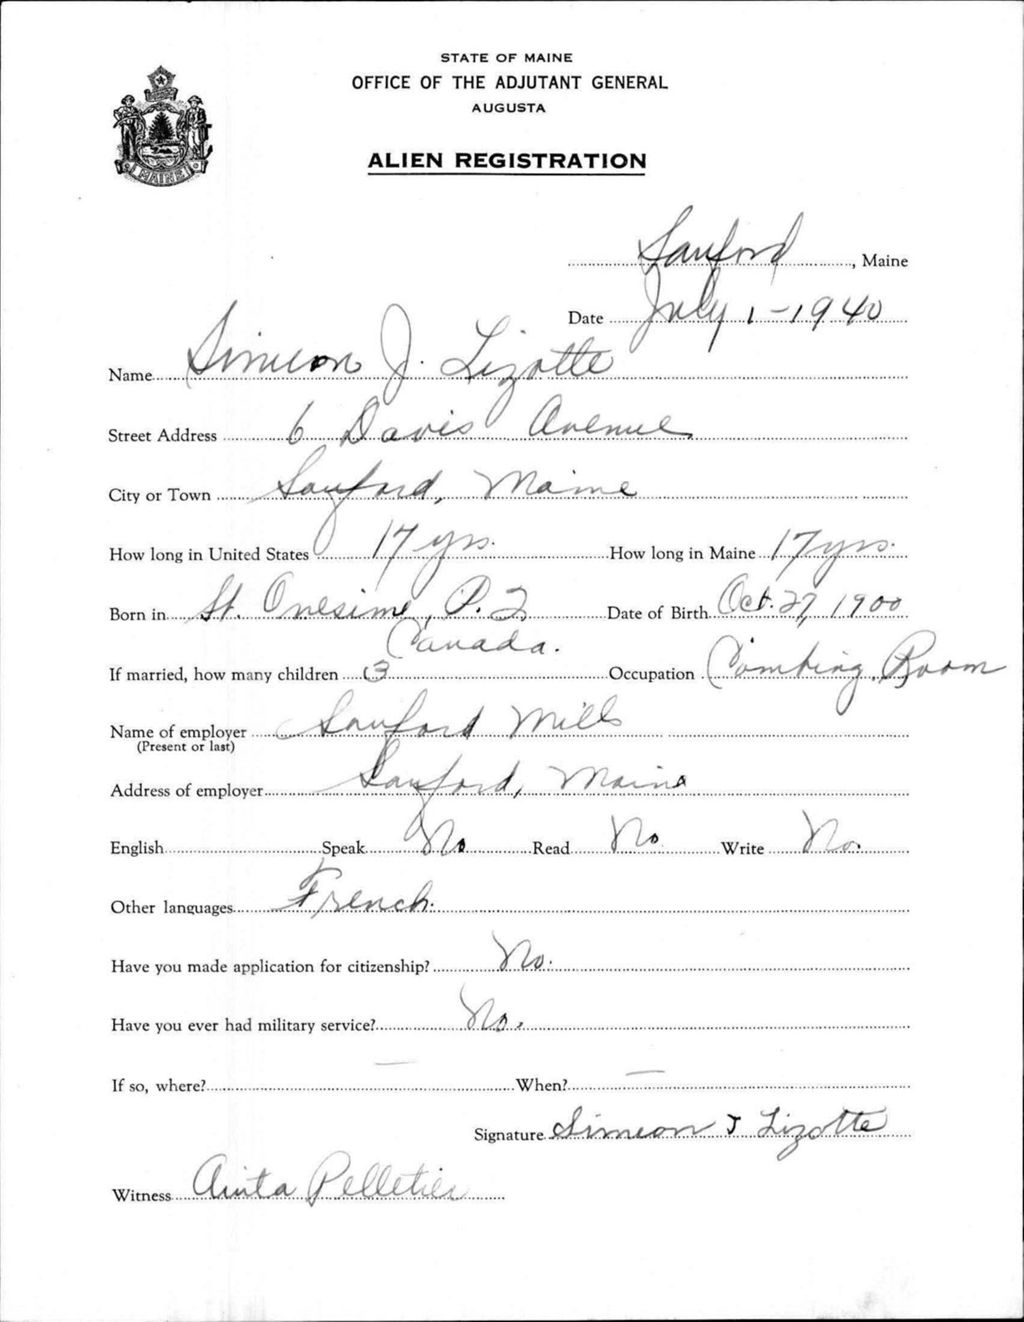 STATE OF MAINE
OFFICE OF THE ADJUTANT GENERAL
AUGUSTA
ALIEN REGISTRATION
MAINE
Sanford, Maine
Date July 1-1940
Name Simeon J. Lizotte
Street Address 6 Davis Avenue
City or Town Sanford, Maine
How long in United States 17 yrs. How long in Maine 17 yrs.
Born in St. Onesime, P.Q Date of Birth Oct. 27, 1900
Canada.
If married, how many children 3 Occupation Combing Room
Name of employer Sanford Mills
(Present or last)
Address of employer Sanford, Maine
English Speak No Read No Write No.
Other languages French.
Have you made application for citizenship? No.
Have you ever had military service? No.
If so, where? — When? —
Signature Simeon J Lizotte
Witness Anita Pelletier